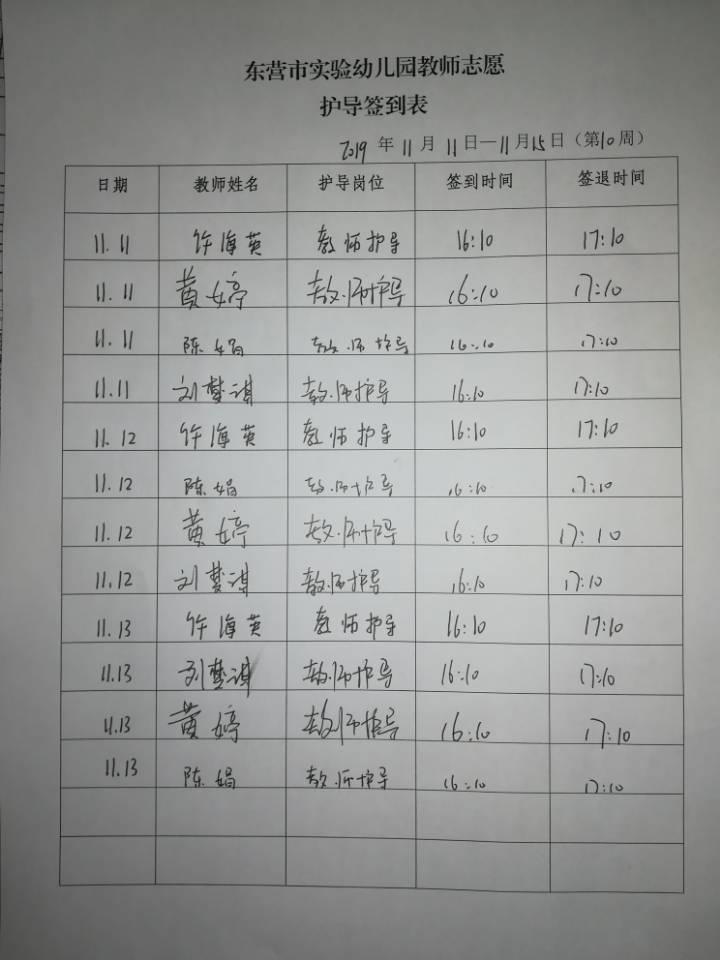 东营市实验幼儿园教师志愿
护导签到表
2019年11月11日—11月15日（第10周）
日期 教师姓名 护导岗位 签到时间 签退时间
11.11 许海英 教师护导 16:10 17:10
11.11 黄婷 教师护导 16:10 17:10
11.11 陈娟 教师护导 16:10 17:10
11.11 刘梦淇 教师护导 16:10 17:10
11.12 许海英 教师护导 16:10 17:10
11.12 陈娟 教师护导 16:10 17:10
11.12 黄婷 教师护导 16:10 17:10
11.12 刘梦淇 教师护导 16:10 17:10
11.13 许海英 教师护导 16:10 17:10
11.13 刘梦淇 教师护导 16:10 17:10
11.13 黄婷 教师护导 16:10 17:10
11.13 陈娟 教师护导 16:10 17:10